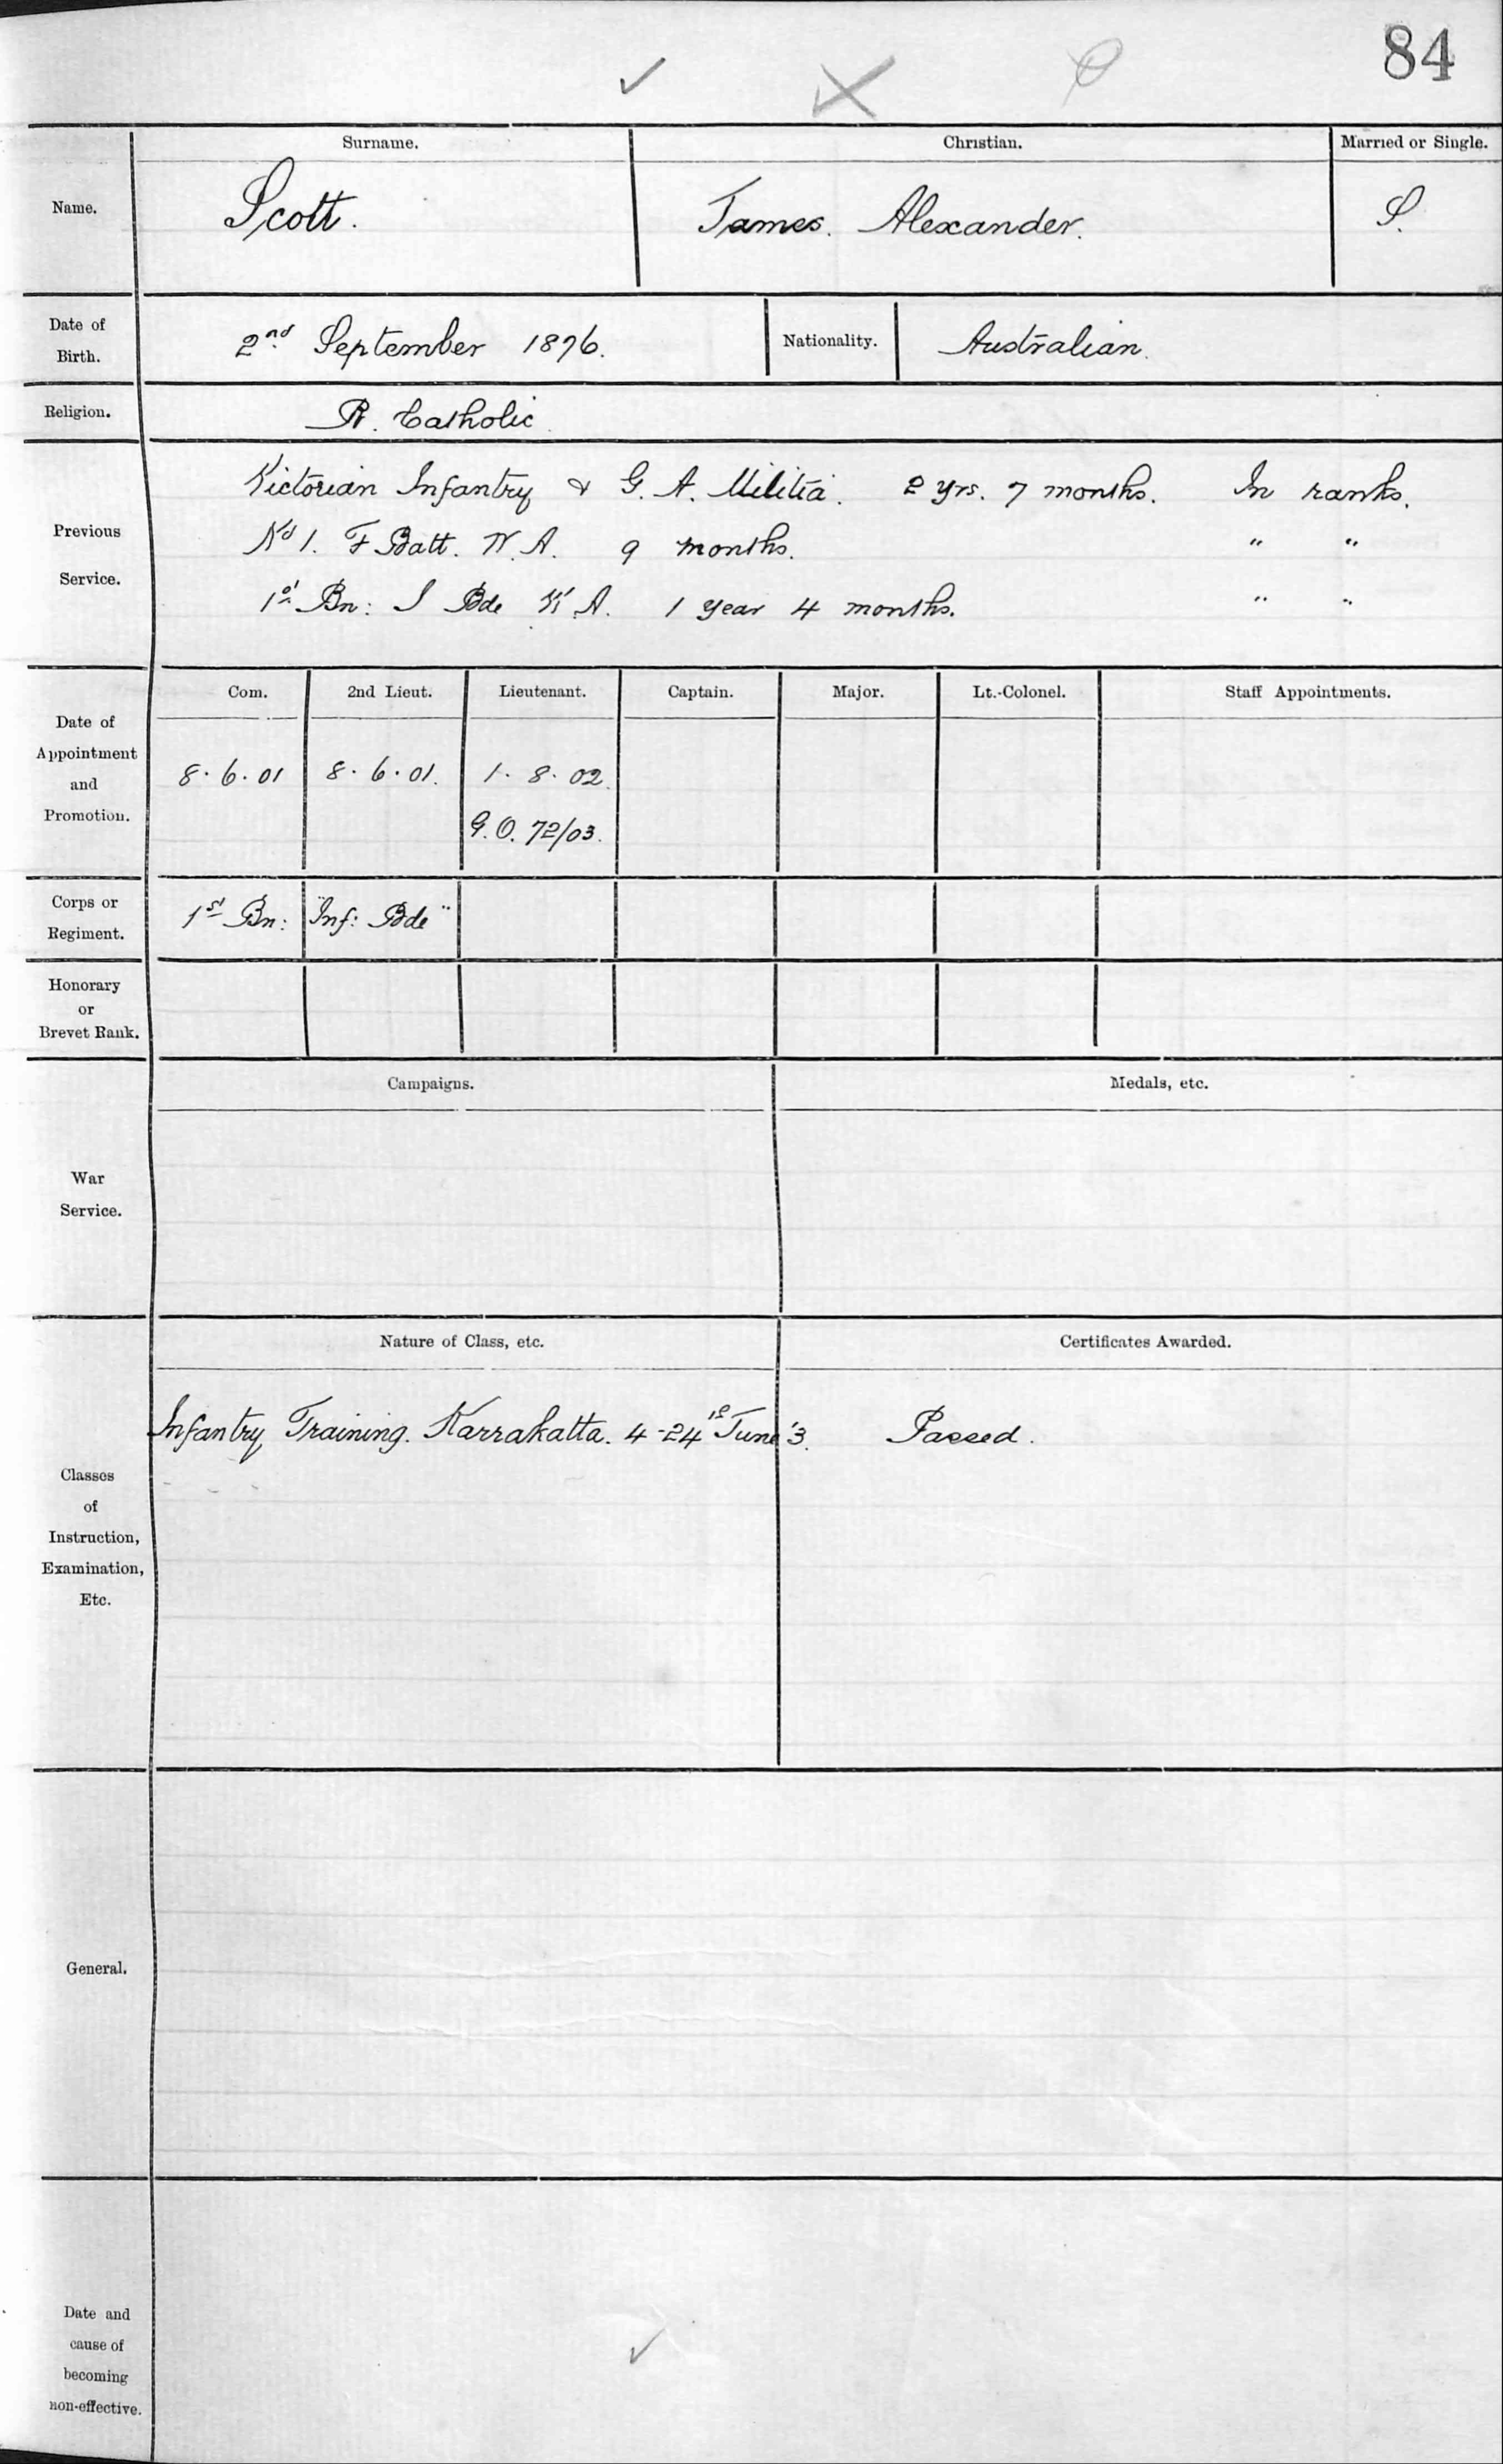 84
Surname. Christian. Married or Single.
Name. Scott. James. Alexander. S.
Date of Birth. 2nd September 1876. Nationality. Australian.
Religion. R. Catholic
Previous Service.
Victorian Infantry & G. A. Militia. 2 yrs. 7 months. In ranks.
No 1. F Batt. W. A. 9 months. " "
1st Bn: I Bde W. A. 1 year 4 months. " "
Date of Appointment and Promotion.
Com. 2nd Lieut. Lieutenant. Captain. Major. Lt.-Colonel. Staff Appointments.
8. 6. 01 8. 6. 01. 1. 8. 02.
G. O. 72/03.
Corps or Regiment. 1st Bn: "Inf: Bde"
Honorary or Brevet Rank.
Campaigns. Medals, etc.
War Service.
Nature of Class, etc. Certificates Awarded.
Infantry Training. Karrakatta. 4-24th June '3. Passed.
Classes of Instruction, Examination, Etc.
General.
Date and cause of becoming non-effective.